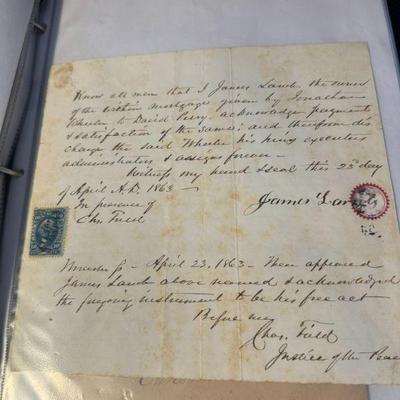 Know all men that I James Lamb the owner
of the within mortgage given by Jonathan
Wheeler to David Perry, acknowledge payment
& satisfaction of the same; and therefore dis
charge the said Wheeler his heirs executors
administrators & assigns forever —
Witness my hand & seal this 23d day
of April A.D. 1863 —
In presence of
Chas. Field
James Lamb
Worcester Ss — April 23, 1863 — Then appeared
James Lamb above named & acknowledged
the foregoing instrument to be his free act
Before me,
Chas. Field
Justice of the Peace